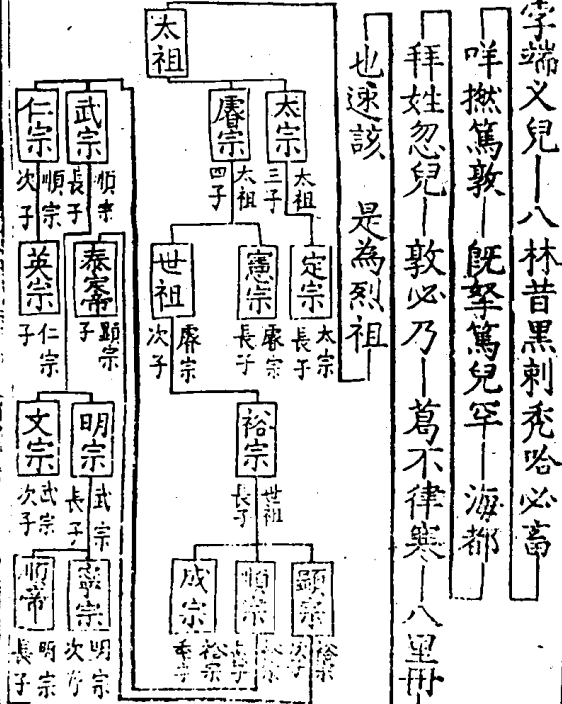 孛端义兒-八林昔黑剌禿哈必畜
咩撚篤敦-既拏篤兒罕-海都
拜姓忽兒-敦必乃-葛不律寒-八里丹
也速該 是為烈祖
太祖
太宗 太祖三子
睿宗 太祖四子
定宗 太宗長子
憲宗 睿宗長子
世祖 睿宗次子
裕宗 世祖長子
顯宗 裕宗
順宗
成宗 裕宗
武宗 順宗長子
仁宗 順宗次子
泰定帝 顯宗子
英宗 仁宗子
明宗 武宗長子
文宗 武宗次子
寧宗 明宗次子
順帝 明宗長子